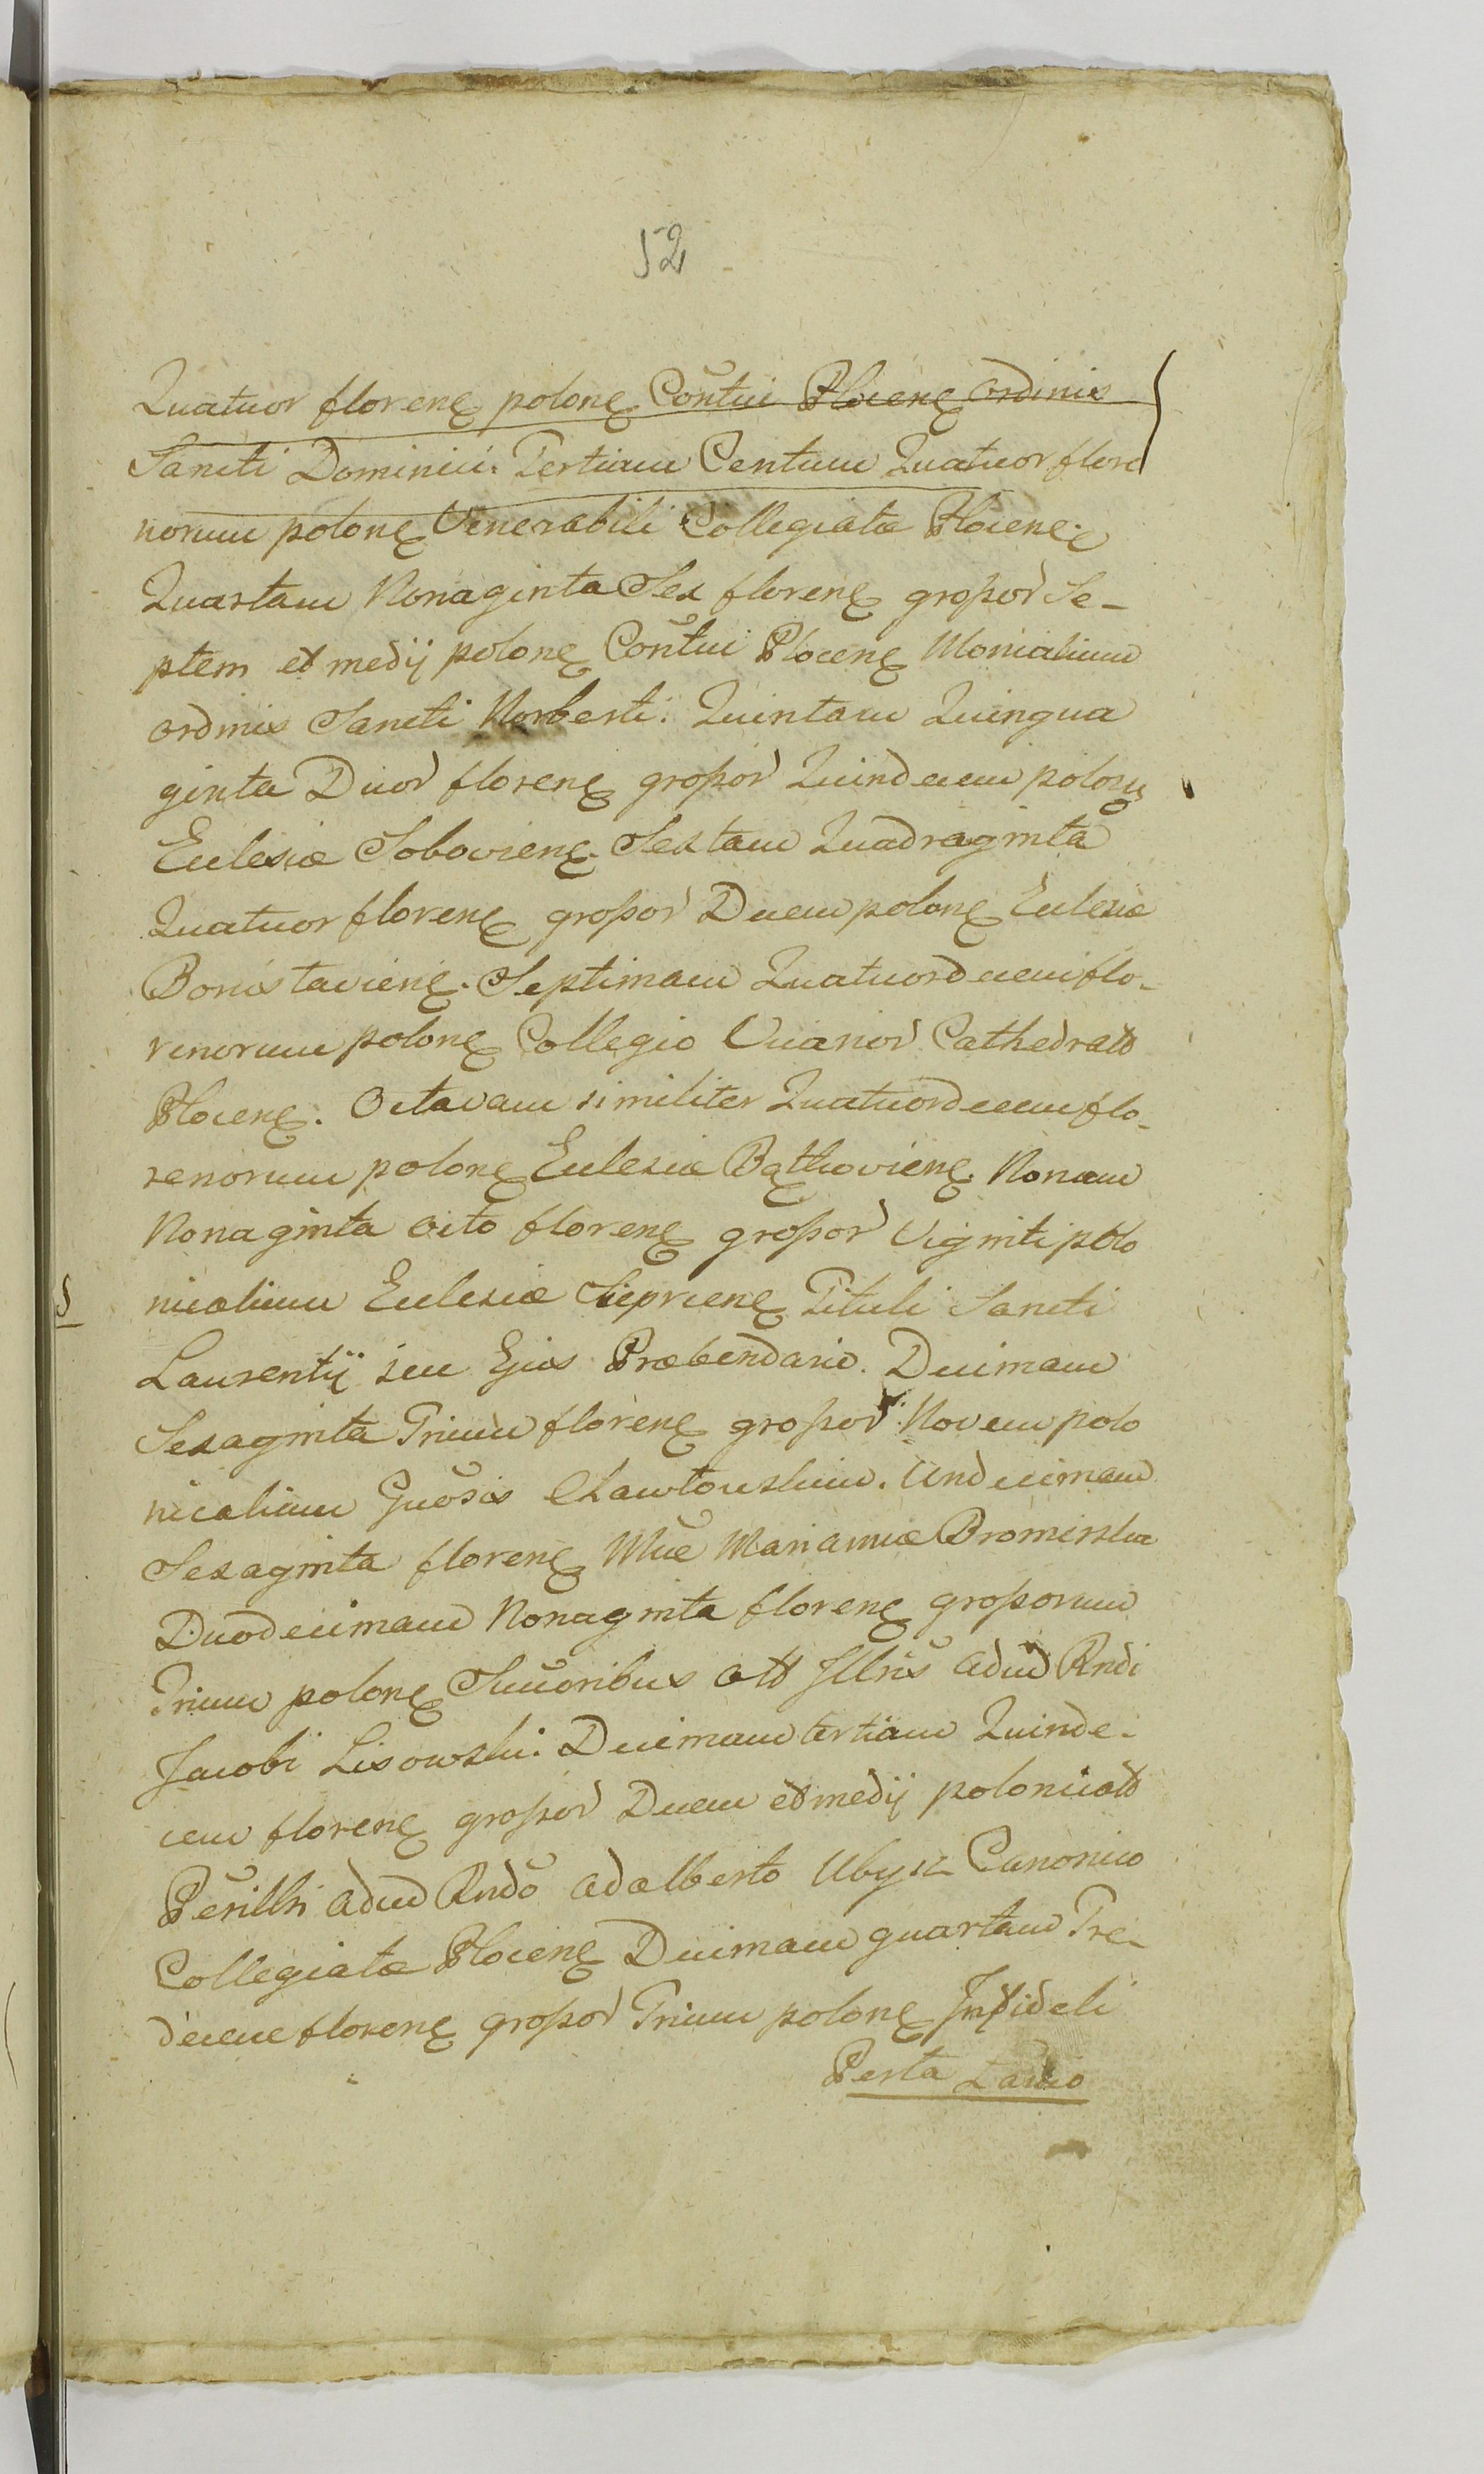 52
Quatuor florenę polonę Con̄tui Plocenę ordinis
Sancti Dominici. Tertiam Centum Quatuor flore
norum polonę Venerabili Collegiatæ Plocenę.
Quartam Nonaginta Sex florenę grossor Se-
ptem et medij polonę Con̄tui Plocenę Monialium
ordinis Sancti Norberti. Quintam Quinqua
ginta Duor florenę grossor Quindecem polonę
Ecclesiæ Sobovienę. Sextam Quadraginta
Quatuor florenę grossor Decem polonę Ecclesiæ
Bonistavienę. Septimam Quatuordecem flo-
renorum polonę Collegio Vicarior Cathedral
Plocenę. Octavam similiter Quatuordecem flo-
renorum polonę Ecclesiæ Bąthovienę. Nonam
Nonaginta octo florenę grossor Viginti polo
nicalium Ecclesiæ Sieprcenę Tituli Sancti
Laurentij seu Ejus Præbendario. Decimam
Sexaginta Trium florenę grossor Novem polo
nicalium Gn̄osis Chawtouskim. Undecimam
Sexaginta florenę Mcæ Mariannæ Bromirska
Duodecimam Nonaginta florenę grossorum
Trium polonę Suc̄oribus olt Illris adm Rndi
Jacobi Lisowski. Decimam tertiam Quinde-
cem florenę grossor Decem et medij polonical
Perillri adm Rndo Adalberto Ubysz Canonico
Collegiatæ Plocenę Decimam quartam Tre-
decem florenę grossor Trium polonę Infideli
Perla